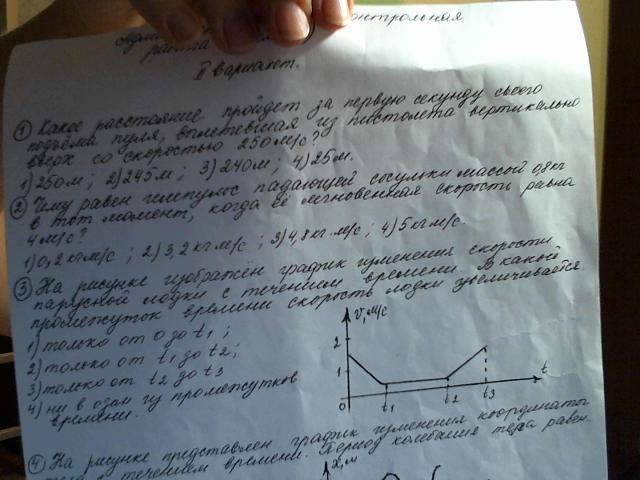 контрольная
работа
II вариант.
① Какое расстояние пройдет за первую секунду своего
подъёма пуля, вылетевшая из пистолета вертикально
вверх со скоростью 250 м/с?
1) 250 м; 2) 245 м; 3) 240 м; 4) 25 м.
② Чему равен импульс падающей сосульки массой 0,8 кг
в тот момент, когда её мгновенная скорость равна
4 м/с?
1) 0,2 кг м/с; 2) 3,2 кг м/с; 3) 4,8 кг·м/с; 4) 5 кг м/с.
③ На рисунке изображён график изменения скорости
парусной лодки с течением времени. В какой
промежуток времени скорость лодки увеличивается.
1) только от 0 до t1;
2) только от t1 до t2;
3) только от t2 до t3
4) ни в одном из промежутков
времени.
V, м/с
2
1
0
t1
t2
t3
t
④ На рисунке представлен график изменения координаты
тела с течением времени. Период колебания тела равен.
x, м